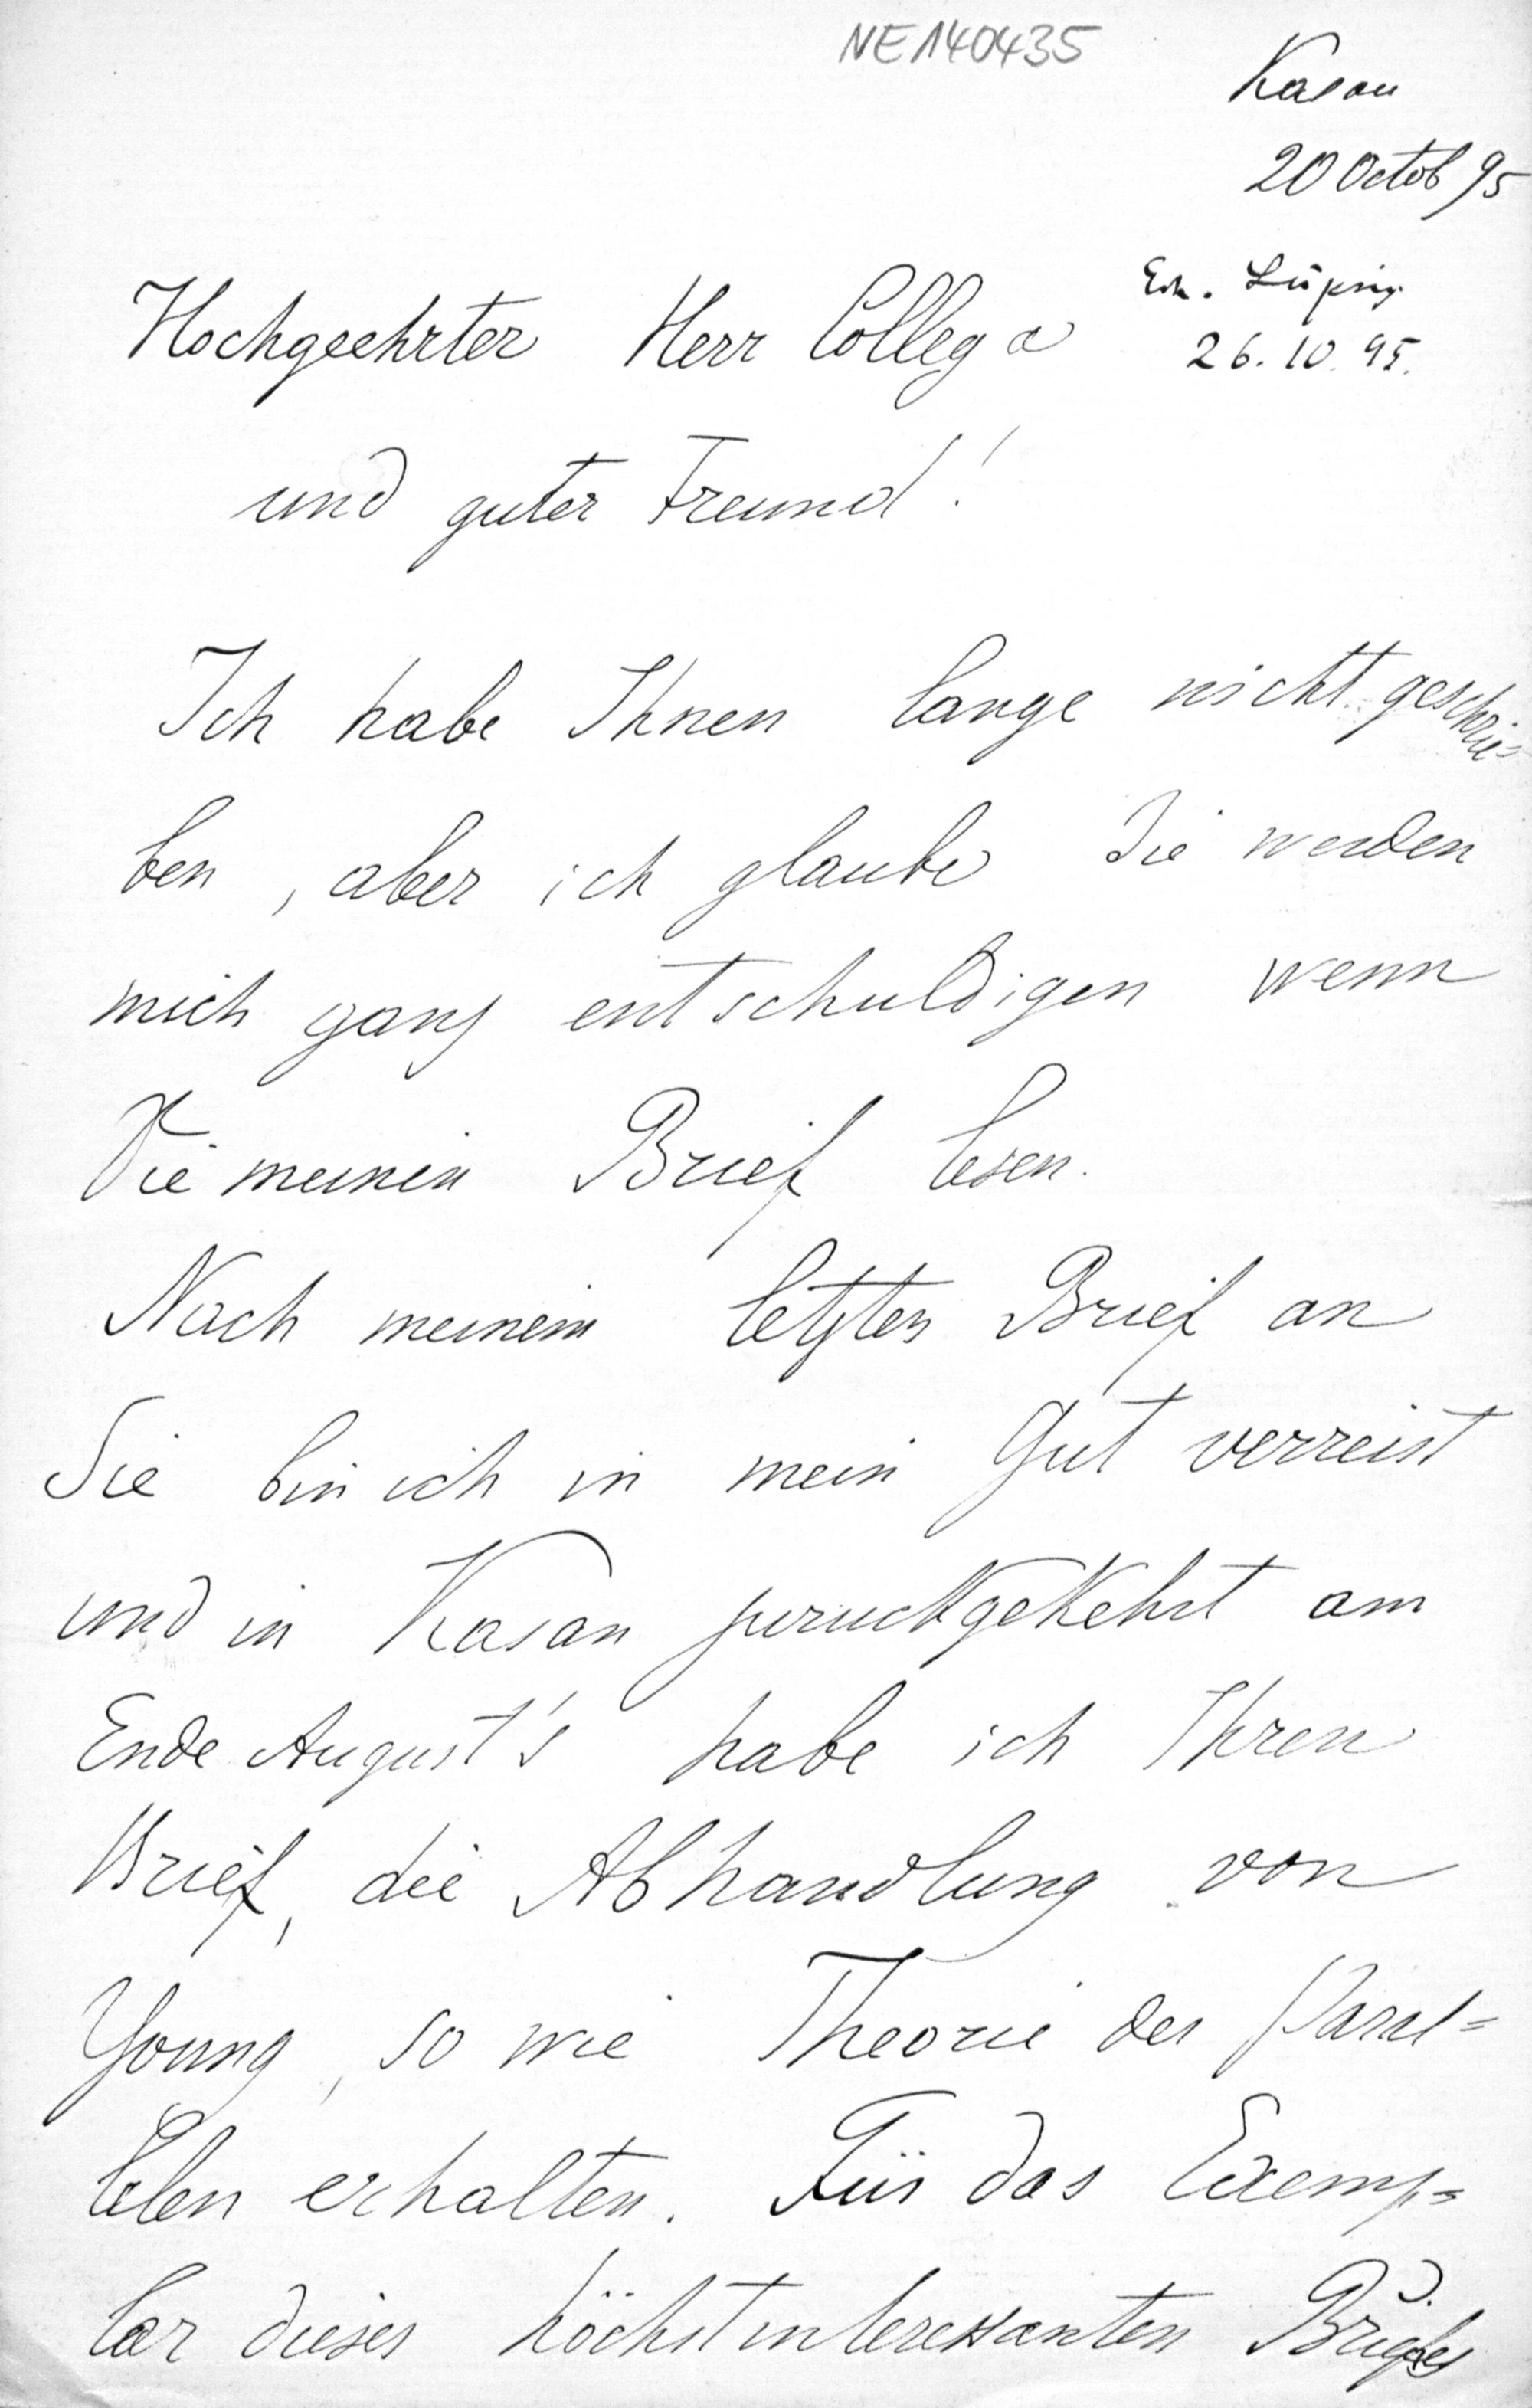 NE140435
Kasan
20 Octob 95
Hochgeehrter Herr Collega
Leipzig
26.10.95.
und guter Freund!
Ich habe Ihnen lange nicht geschrie=
ben, aber ich glaube Sie werden
mich ganz entschuldigen wenn
Sie meinen Brief lesen.
Nach meinem letzten Brief an
Sie bin ich in mein Gut verreist
und in Kasan zuruckgekehrt am
Ende August's habe ich Ihren
Brief, die Abhandlung von
Young, so wie Theorie der Paral=
lelen erhalten. Für das Exemp=
lar dieses höchst interessanten